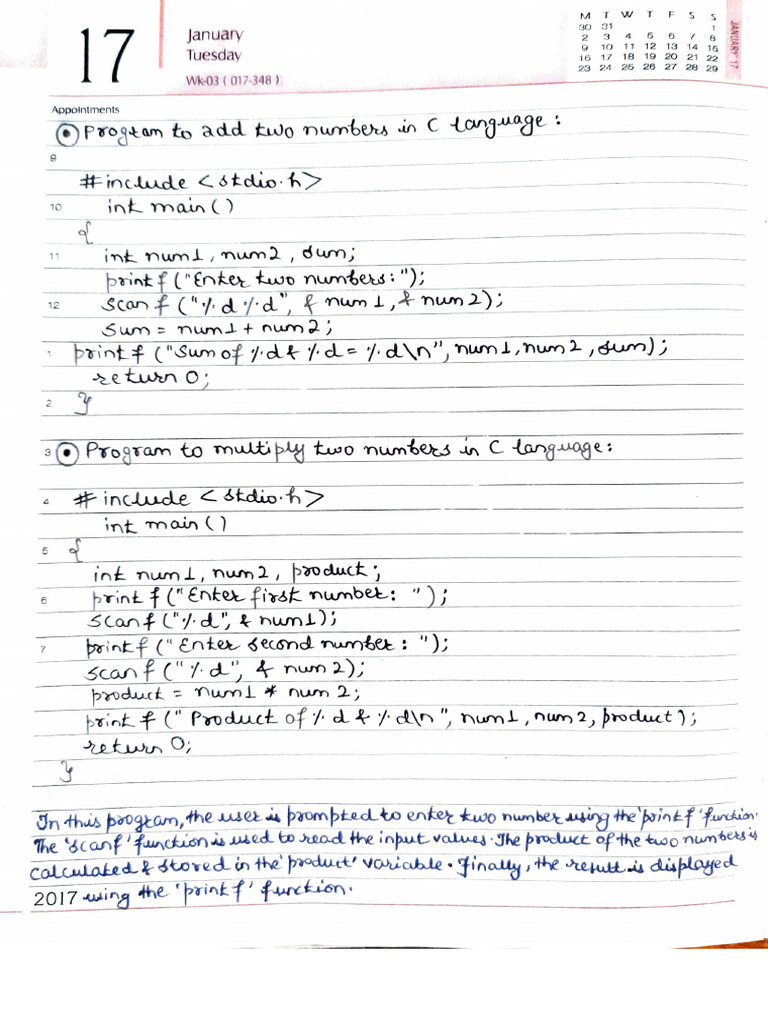 17
January
Tuesday
Wk-03 ( 017-348 )
M T W T F S S
30 31 1
2 3 4 5 6 7 8
9 10 11 12 13 14 15
16 17 18 19 20 21 22
23 24 25 26 27 28 29
JANUARY' 17
Appointments
Program to add two numbers in C language:
9
#include <stdio.h>
10 int main()
{
11 int num1, num2, sum;
printf ("Enter two numbers:");
12 scanf ("%d %d", & num1, & num2);
sum = num1 + num2;
1 printf ("Sum of %d & %d = %d\n", num1, num2, sum);
return 0;
2 }
3 Program to multiply two numbers in C language:
4 # include <stdio.h>
int main()
5 {
int num1, num2, product;
6 printf ("Enter first number: ");
scanf ("%d", & num1);
7 printf ("Enter second number: ");
scanf ("%d", & num2);
product = num1 * num2;
printf (" Product of %d & %d\n", num1, num2, product);
return 0;
}
In this program, the user is prompted to enter two number using the 'printf' function.
The 'scanf' function is used to read the input values. The product of the two numbers is
calculated & stored in the 'product' variable. Finally, the result is displayed
2017 using the 'printf' function.